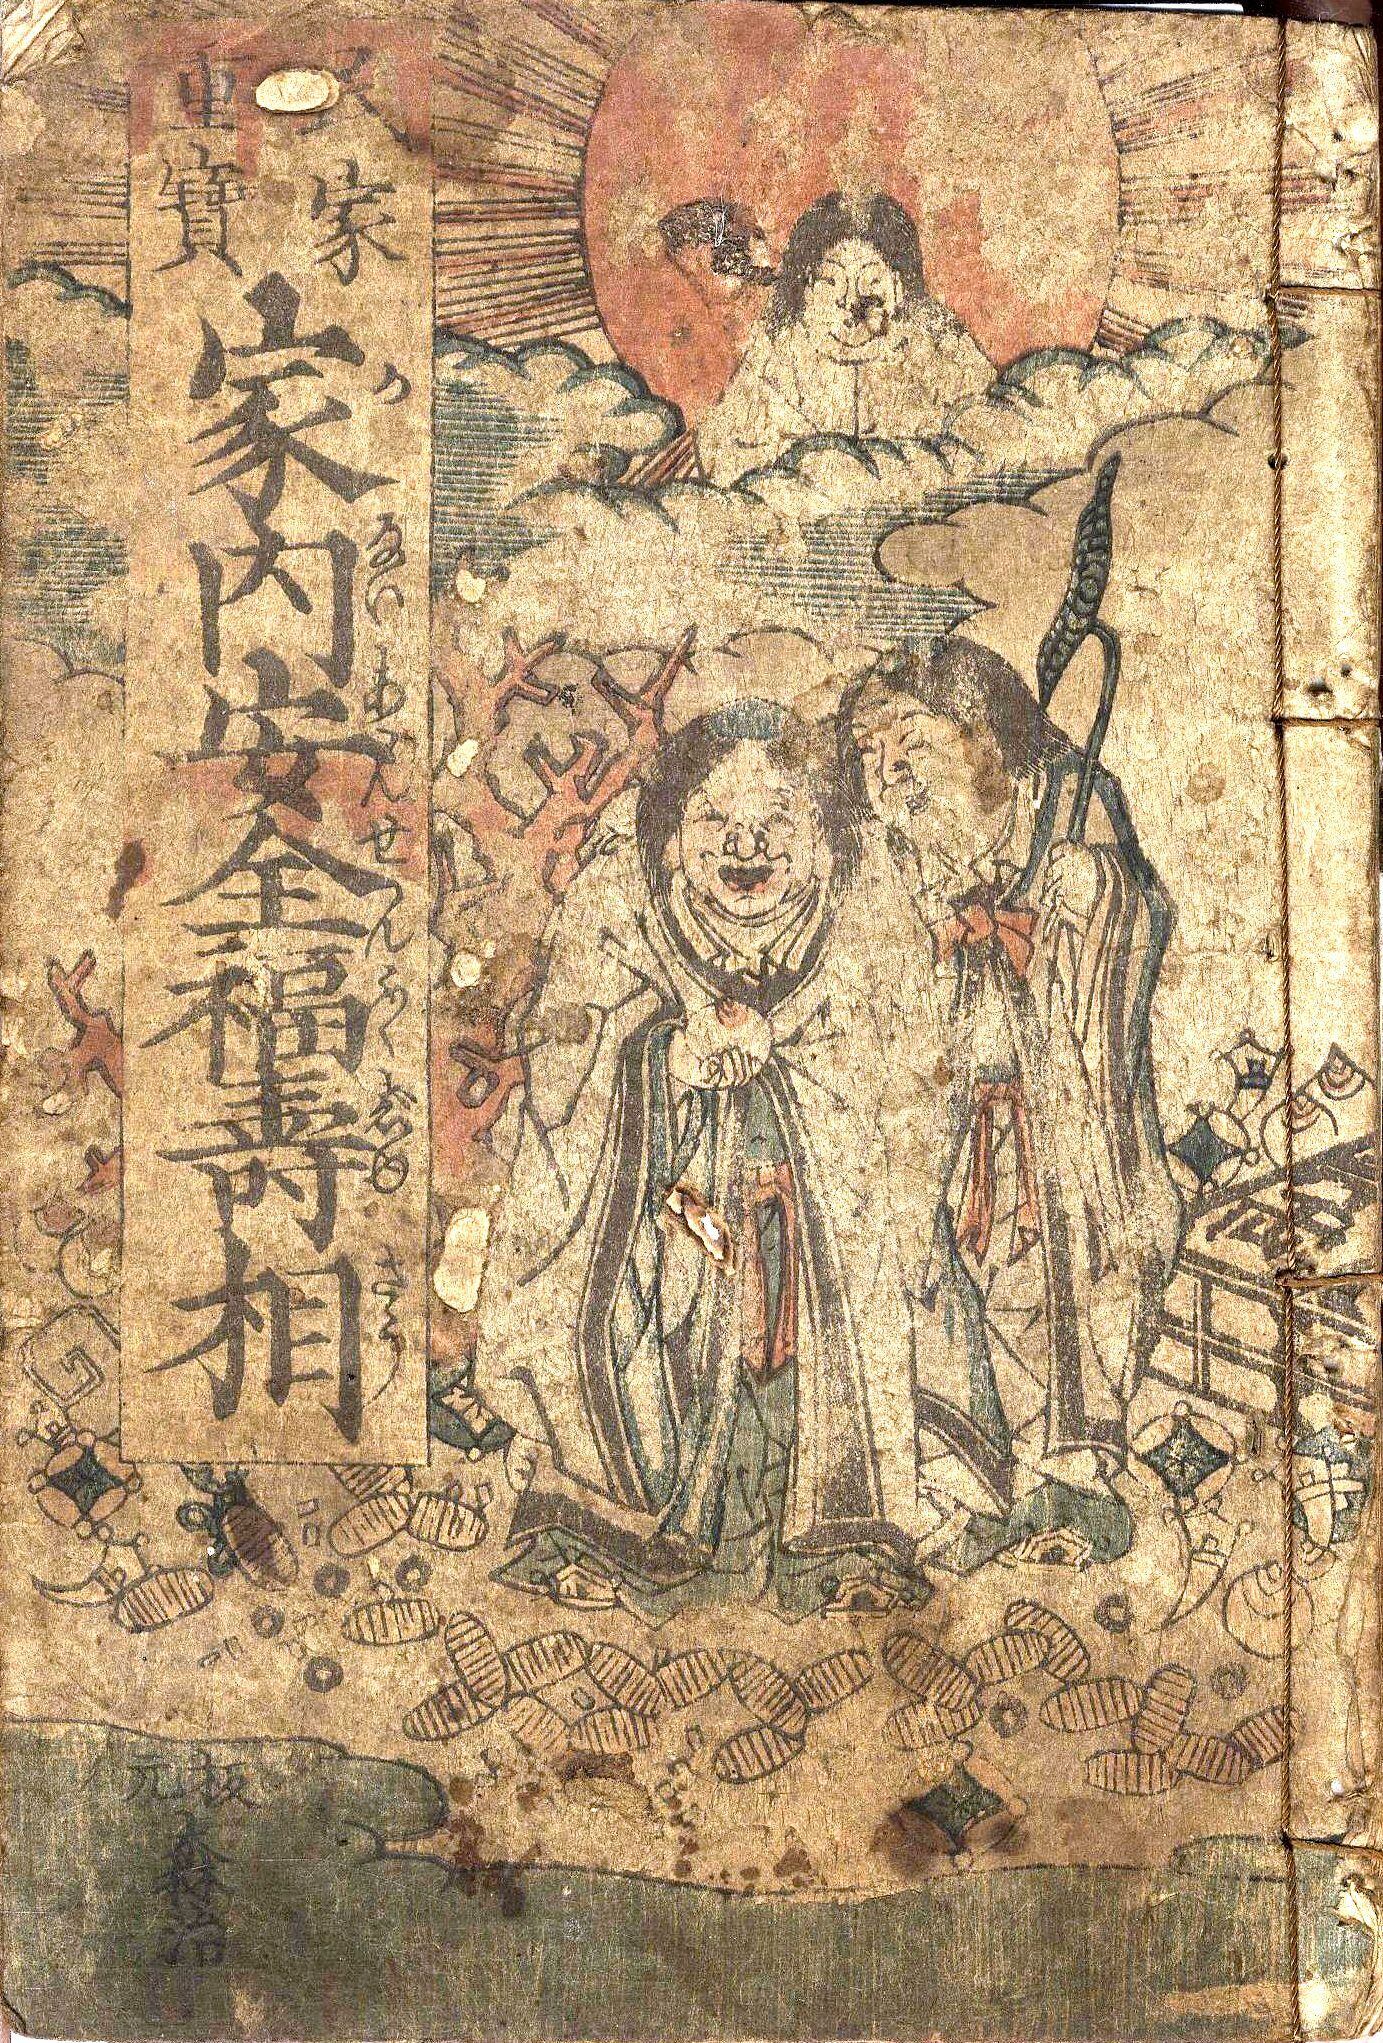 家
重寶
家内安全福壽相
かないあんぜんふくじゆさう
板元
森治